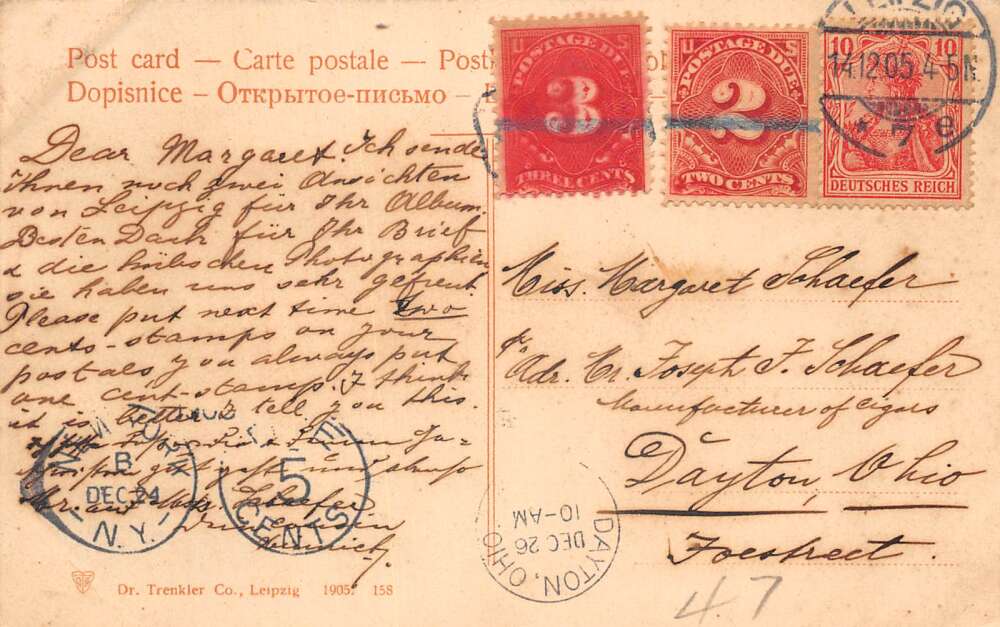 Post card — Carte postale — Post
Dopisnice — Открытое-письмо —
U S
POSTAGE DUE
3
THREE CENTS
U S
POSTAGE DUE
2
TWO CENTS
10 10
DEUTSCHES REICH
LEIPZIG
14.12.05.4-5N.
* 7 e
Dear Margaret. Ich sende
Ihnen noch zwei Ansichten
von Leipzig für Ihr Album.
Besten Dank für Ihr Brief
& die hübschen Photographien
sie haben uns sehr gefreut.
Please put next time two
cents-stamps on your
postals you always put
one cent-stamp. I think
it is better I tell you this.
Miss. Margaret Schaefer
Adr. Mr. Joseph F. Schaefer
Manufacturer of Cigars
Dayton, Ohio
Foestreet.
NEW YORK
B
DEC 24
N.Y.
DUE
5
CENTS
DAYTON, OHIO
DEC 26
10-AM
Dr. Trenkler Co., Leipzig 1905. 158
47